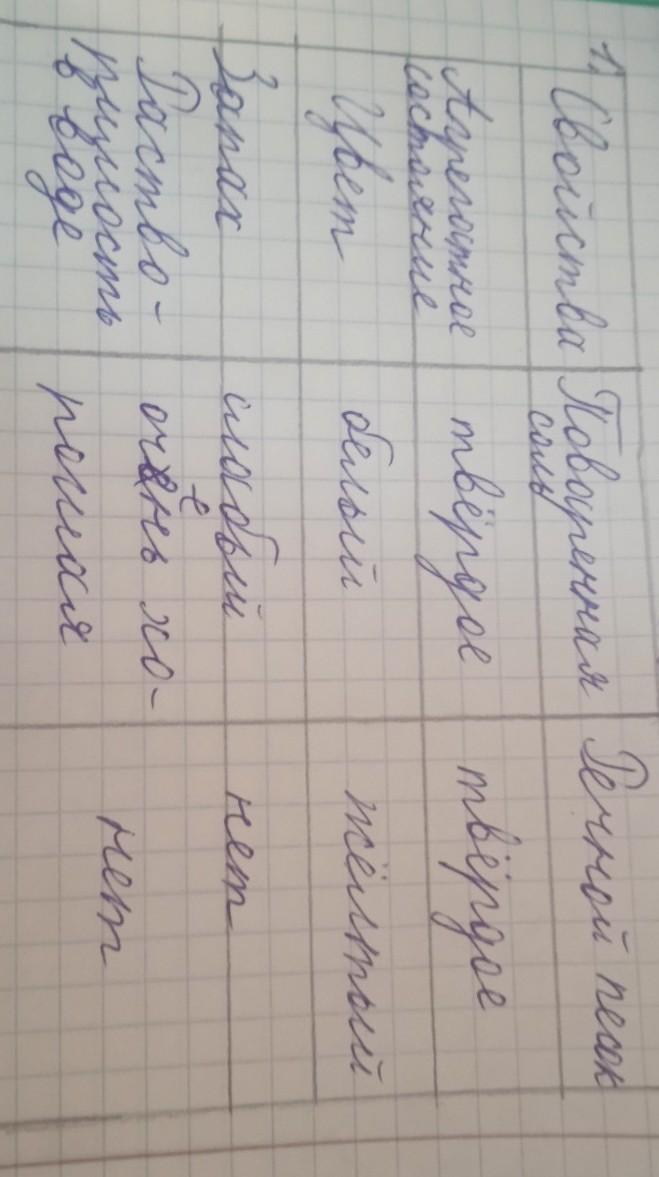 1. Свойства Поваренная Речной песок
соль
Агрегатное твёрдое твёрдое
состояние
Цвет белый жёлтый
Запах слабый нет
Раство- очень хо- нет
римость рошая
в воде